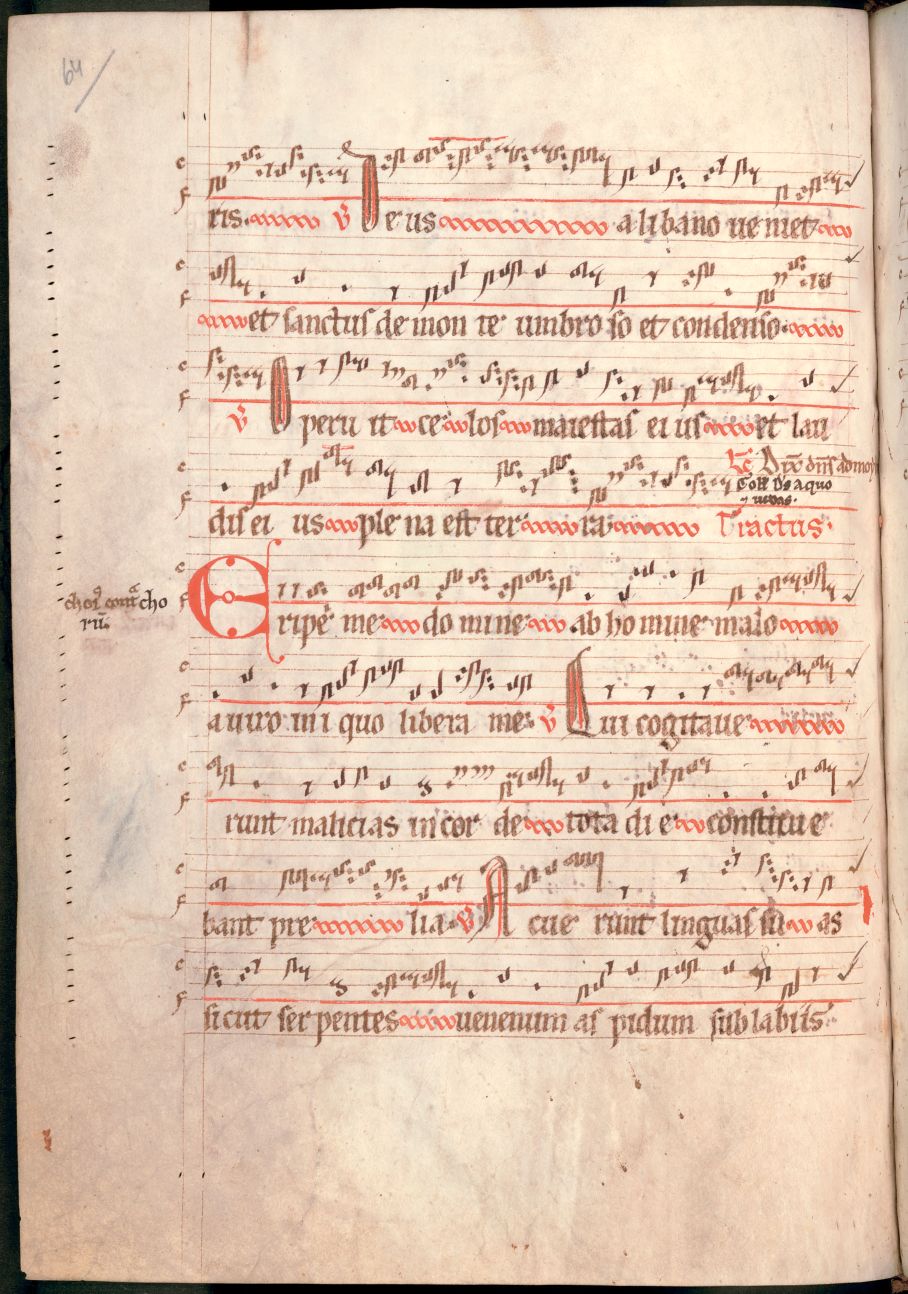 64
ris. V Deus a libano ueniet
et sanctus de monte umbroso et condenso.
V Aperuit celos maiestas eius et lau
dis eius plena est terra Tractus.
Coll Ds a quo
Eripe me domine ab homine malo
cho
rū.
a uiro iniquo libera me. V Qui cogitaue
runt malicias in corde tota die constitue
bant prelia. V Acuerunt linguas suas
sicut serpentes uenenum aspidum sub labiis